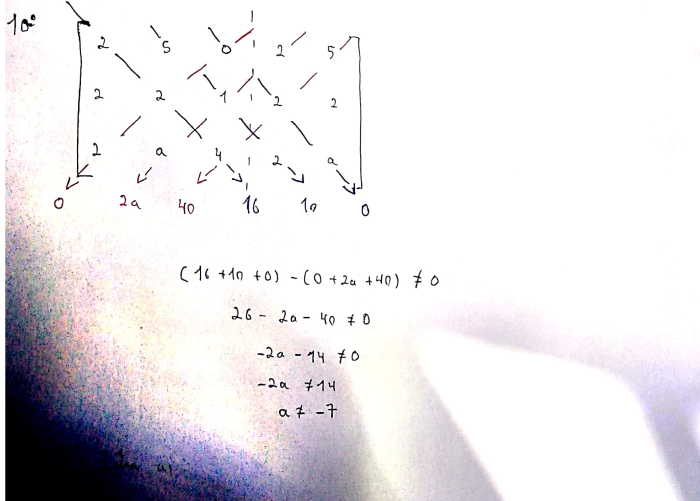 10º
2 5 0 2 5
2 2 1 2 2
2 a 4 2 a
0 2a 40 16 10 0
(16 +10 +0) - (0 +2a +40) ≠ 0
26 - 2a - 40 ≠ 0
-2a - 14 ≠ 0
-2a ≠ 14
a ≠ -7